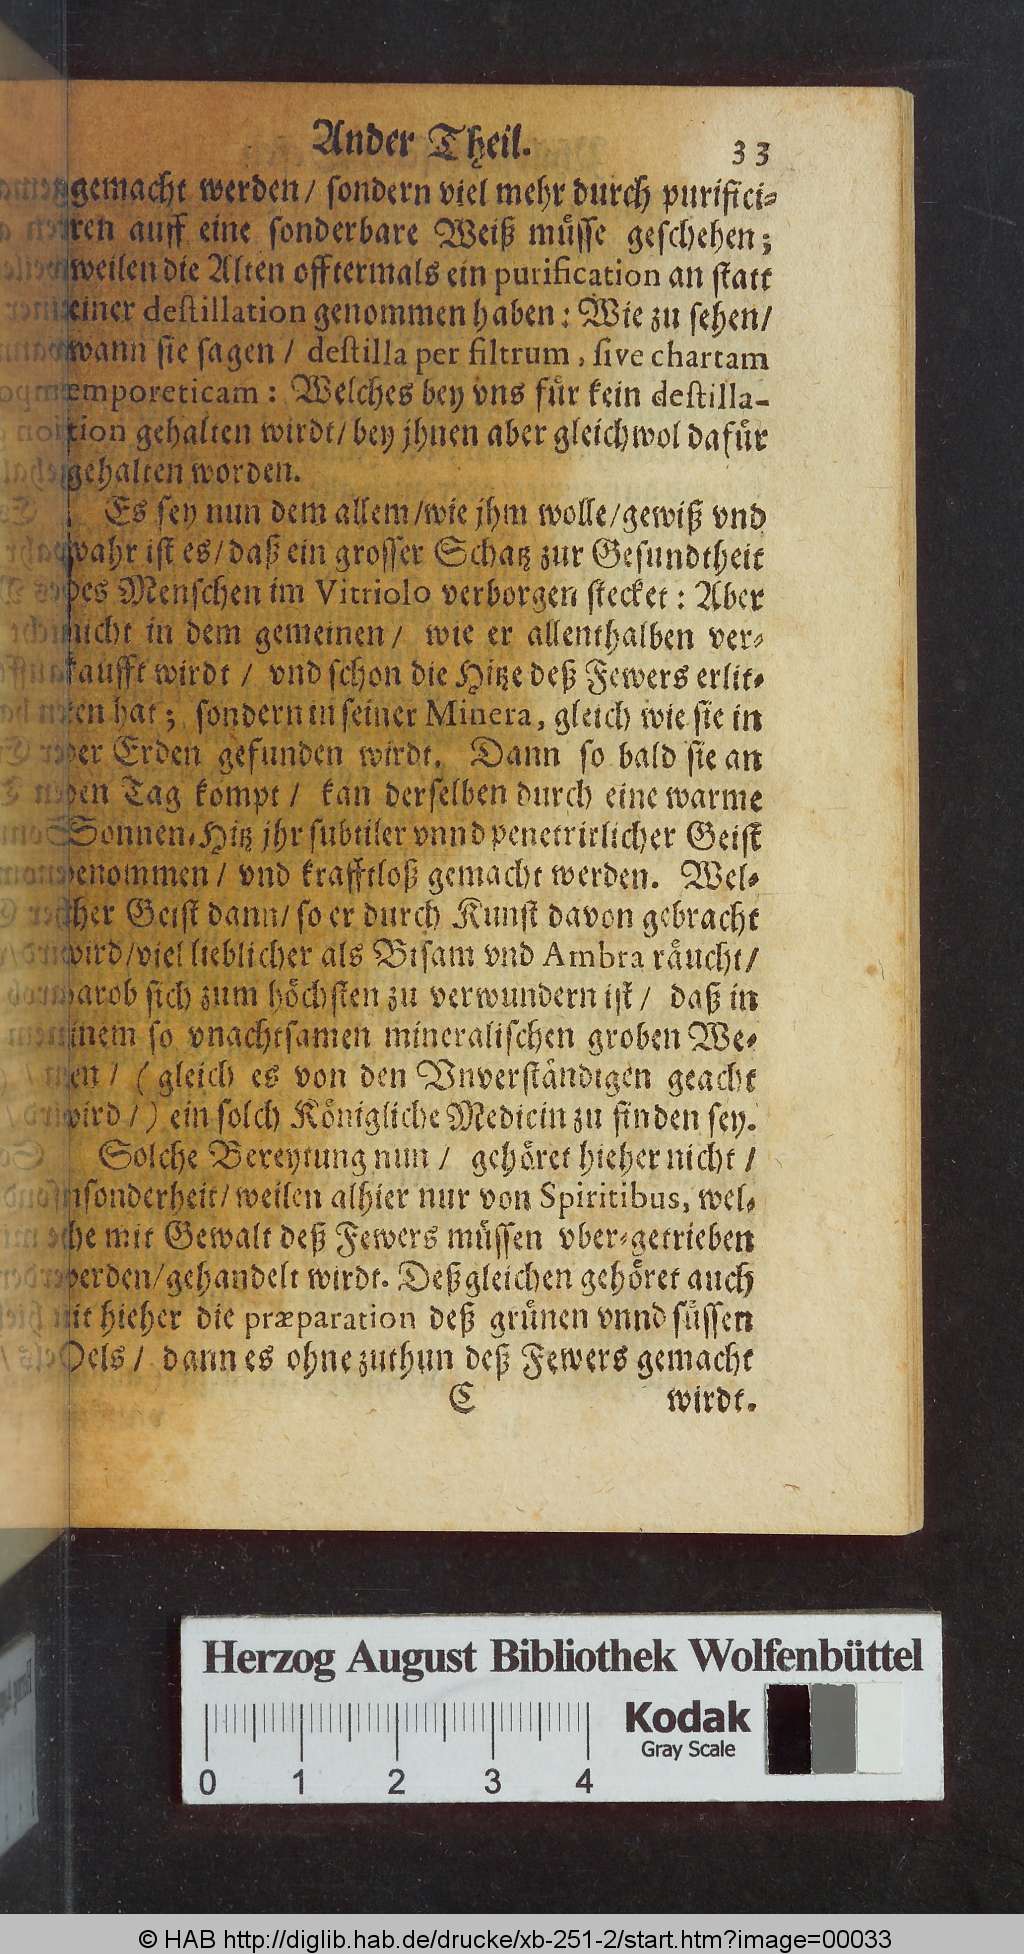 Ander Theil. 33
gemacht werden/ sondern viel mehr durch purifici-
ren auff eine sonderbare Weiß müsse geschehen;
weilen die Alten offtermals ein purification an statt
einer destillation genommen haben: Wie zu sehen/
wann sie sagen / destilla per filtrum, sive chartam
emporeticam: Welches bey vns für kein destilla-
tion gehalten wirdt/ bey jhnen aber gleichwol dafür
gehalten worden.
Es sey nun dem allem/wie jhm wolle/gewiß vnd
wahr ist es/ daß ein grosser Schatz zur Gesundtheit
des Menschen im Vitriolo verborgen stecket: Aber
nicht in dem gemeinen/ wie er allenthalben ver-
kaufft wirdt / vnd schon die Hitze deß Fewers erlit-
ten hat; sondern in seiner Minera, gleich wie sie in
der Erden gefunden wirdt. Dann so bald sie an
den Tag kompt/ kan derselben durch eine warme
Sonnen-Hitz jhr subtiler vnnd penetrirlicher Geist
benommen/ vnd krafftloß gemacht werden. Wel-
cher Geist dann/ so er durch Kunst davon gebracht
wird/viel lieblicher als Bisam vnd Ambra räucht/
warob sich zum höchsten zu verwundern ist/ daß in
einem so vnachtsamen mineralischen groben We-
sen/ (gleich es von den Vnverständigen geacht
wird/) ein solch Königliche Medicin zu finden sey.
Solche Bereytung nun / gehöret hieher nicht /
insonderheit/ weilen alhier nur von Spiritibus, wel-
che mit Gewalt deß Fewers müssen vber-getrieben
werden/gehandelt wirdt. Deßgleichen gehöret auch
nit hieher die præparation deß grünen vnnd süssen
Oels/ dann es ohne zuthun deß Fewers gemacht
C wirdt.
Herzog August Bibliothek Wolfenbüttel
Kodak
Gray Scale
0 1 2 3 4
© HAB http://diglib.hab.de/drucke/xb-251-2/start.htm?image=00033